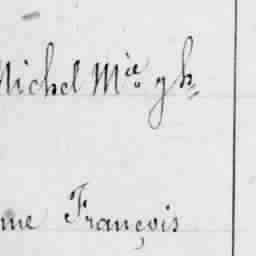 Michel Mie gh
me François